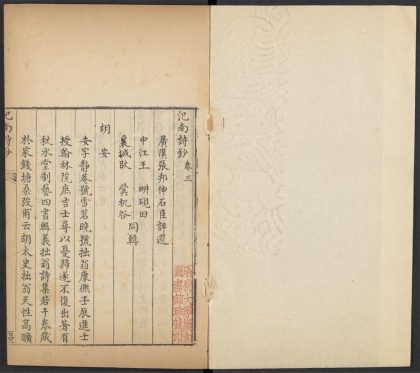 氾南詩鈔 卷三
廣漢張邦伸石臣評選
中江王 畊硯田
襄城耿 蓂杌谷
同輯
胡 安
安字靜菴號雪茗晚號拙翁康熙壬辰進士
授翰林院庶吉士尋以憂歸遂不復出著有
秋水堂制藝四書輯義拙翁詩集若干卷藏
於家錢塘桑弢甫云胡太史拙翁天性高曠
氾南詩鈔